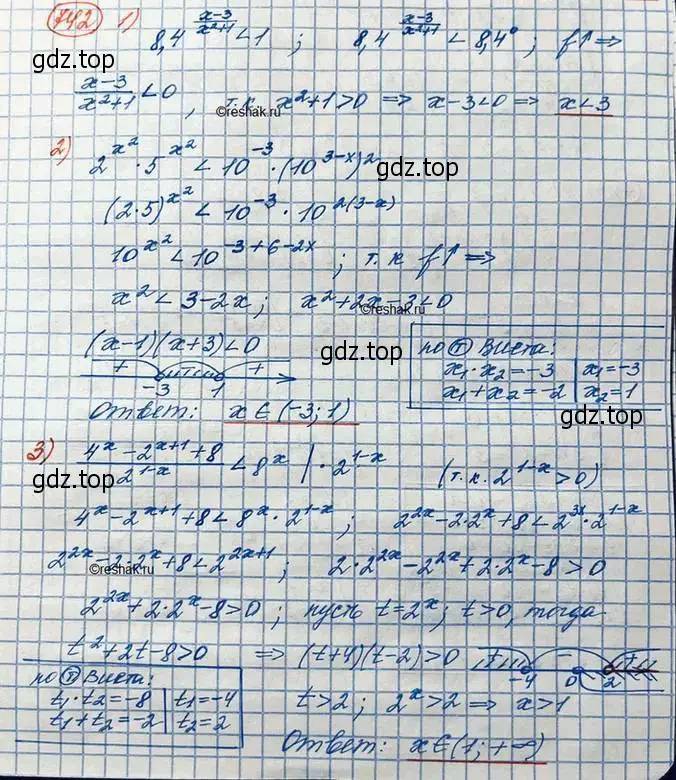 742 1) 8,4^((x-3)/(x²+1)) < 1 ; 8,4^((x-3)/(x²+1)) < 8,4⁰ ; f↑ ⇒
gdz.top
gdz.top
(x-3)/(x²+1) < 0 , т.к. x²+1>0 ⇒ x-3<0 ⇒ x<3
©reshak.ru
2) 2^(x²) · 5^(x²) < 10^(-3) · (10^(3-x))²
gdz.top
gdz.top
(2·5)^(x²) < 10^(-3) · 10^(2(3-x))
10^(x²) < 10^(-3+6-2x) ; т.к f↑ ⇒
x² < 3-2x ; x²+2x-3<0
©reshak.ru
(x-1)(x+3)<0
gdz.top
по Ⓣ Виета:
x₁·x₂=-3 | x₁=-3
x₁+x₂=-2 | x₂=1
+ - +
-3 1
gdz.top
Ответ: x∈(-3;1)
3) (4^x - 2^(x+1) + 8)/(2^(1-x)) < 8^x | · 2^(1-x) (т.к. 2^(1-x) > 0)
gdz.top
gdz.top
4^x - 2^(x+1) + 8 < 8^x · 2^(1-x) ; 2^(2x) - 2·2^x + 8 < 2^(3x) · 2^(1-x)
2^(2x) - 2·2^x + 8 < 2^(2x+1) ; 2·2^(2x) - 2^(2x) + 2·2^x - 8 > 0
©reshak.ru
2^(2x) + 2·2^x - 8 > 0 ; пусть t=2^x ; t>0, тогда
t²+2t-8>0 ⇒ (t+4)(t-2)>0
+ - +
-4 0 2
по Ⓣ Виета:
t₁·t₂=-8 | t₁=-4
t₁+t₂=-2 | t₂=2
t>2 ; 2^x>2 ⇒ x>1
gdz.top
gdz.top
Ответ: x∈(1;+∞)